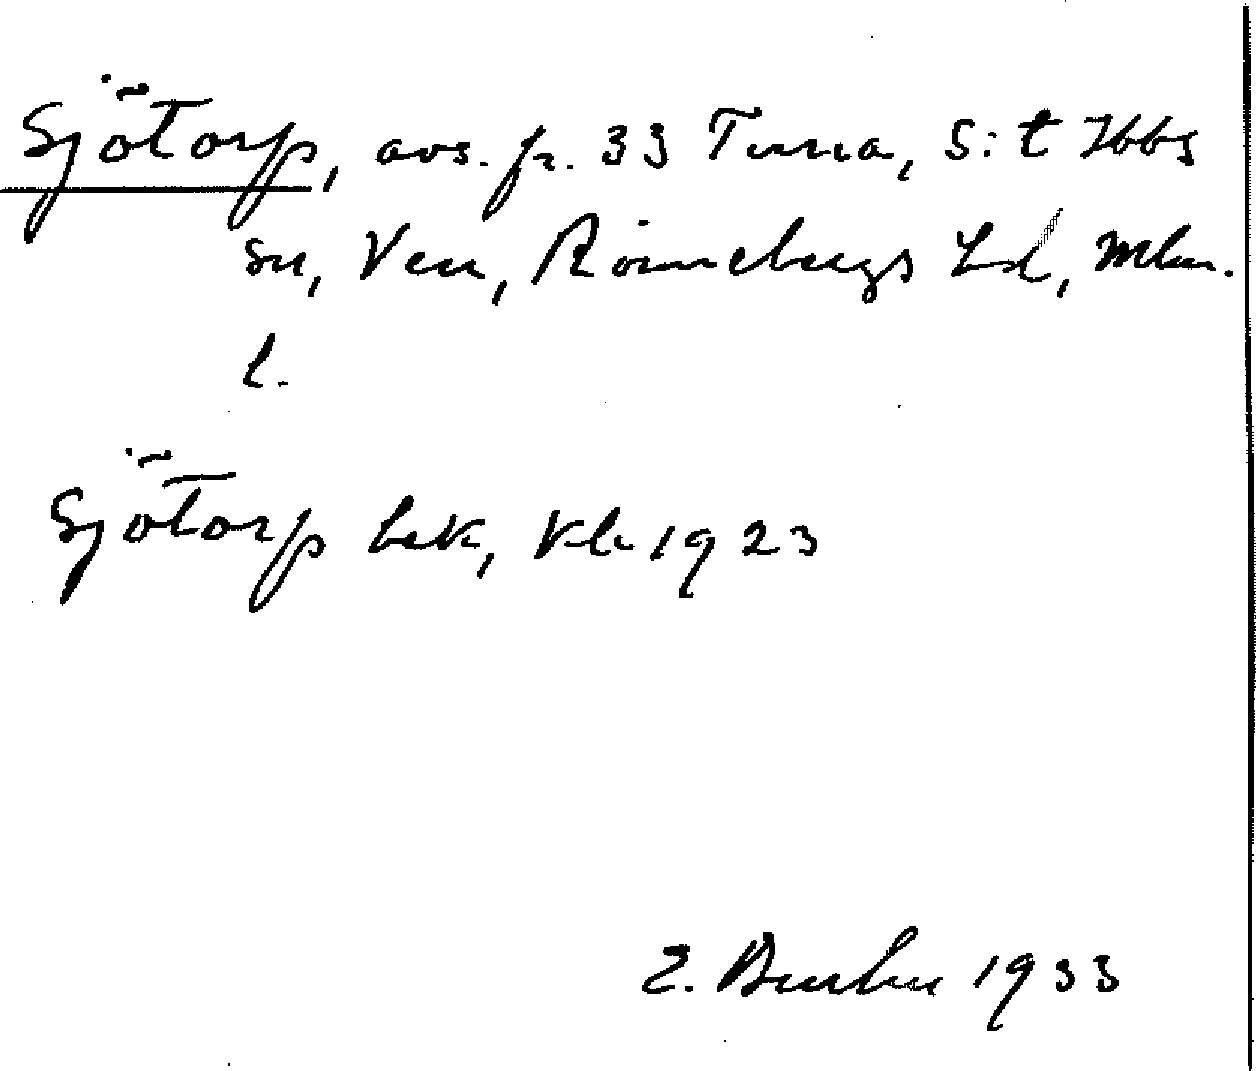 Sjötorp, avs. fr. 33 Tuna, S:t Ibbs
sn, Ven, Rönnebergs hd, Mlm.
l.
Sjötorp bek, Kb 1923
1933